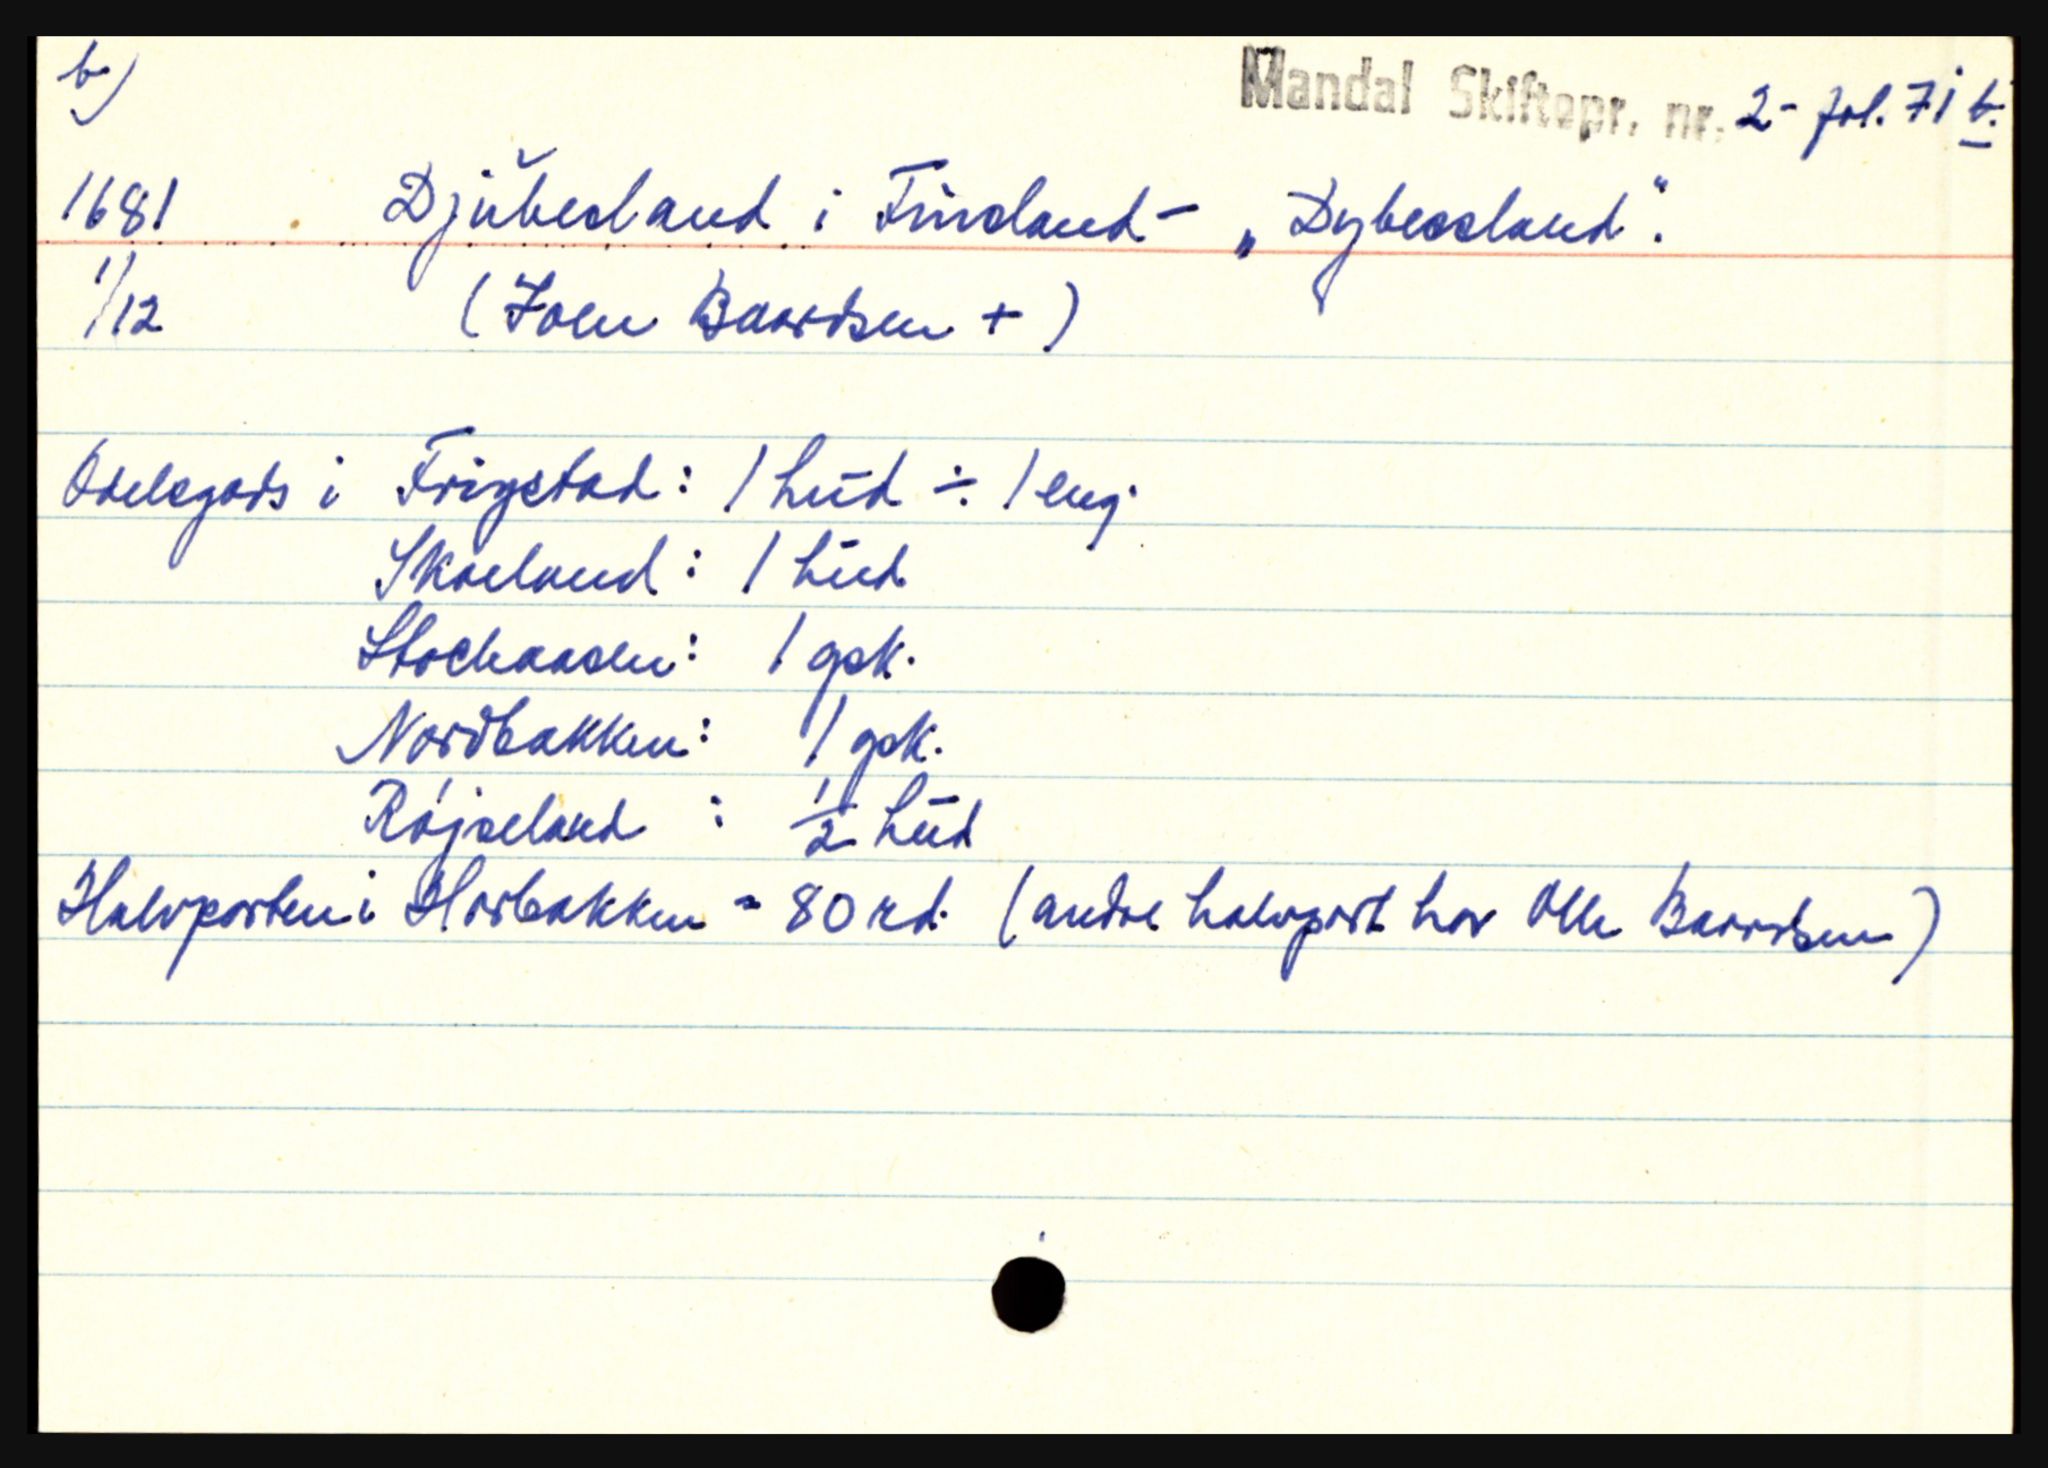 b)
Mandal Skiftepr. nr. 2- fol. 71 b.
1681 Djubesland i Finsland - „Dybessland".
1/12 (Joen Baardsen +)
Odelsgods i Frigstad: 1 hud ÷ 1 eng.
Skaeland: 1 hud
Stochaasen: 1 gsk.
Nordbakken: 1 gsk.
Røjseland : 1/2 hud
Halvparten i Horbakken = 80 rd. (andre halvpart har Olle Baardsen)